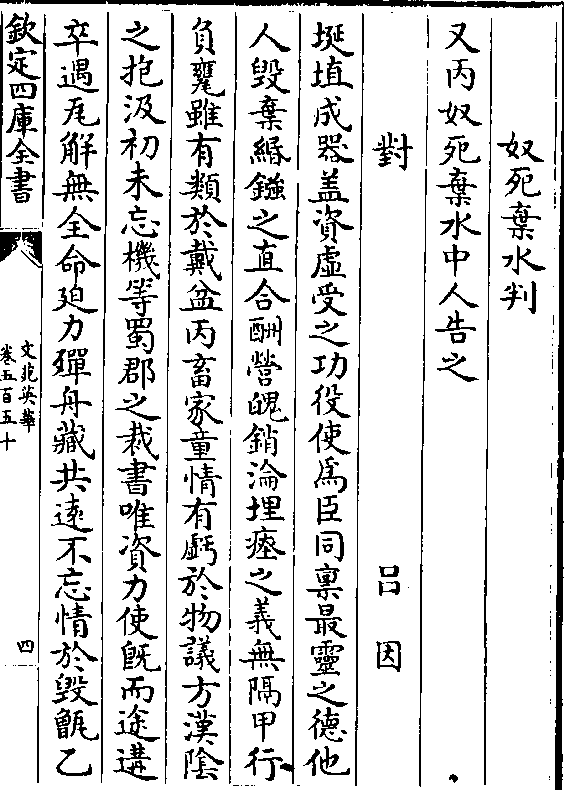 奴死棄水判
又丙奴死棄水中人告之
對
吕因
埏埴成器盖資虚受之功役使為臣同禀最靈之德他
人毁棄緡鏹之直合酬營魄銷淪埋瘞之義無隔甲行
負甕雖有類於戴盆丙畜家童情有虧於物議方漢隂
之抱汲初未忘機等蜀郡之裁書唯資力使既而途遘
卒遇瓦解無全命廹力殫舟藏共逺不忘情於毁甑乙
欽定四庫全書
文苑英華
卷五百五十
四